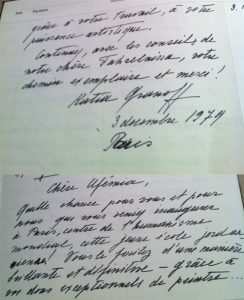 grâce à votre travail, à votre
puissance artistique.
Continuez, avec les conseils de
notre chère Fahrelnissa, votre
chemin exemplaire et merci !
Katia Granoff
3 décembre 1979
Paris
Chère Ufémia,
Quelle chance pour vous et pour
nous que vous venez inaugurer
à Paris, centre de l'humanisme
mondial, cette jeune école jorda
nienne! Vous le faites d'une manière
brillante et définitive – grâce à
vos dons exceptionnels de peintre...